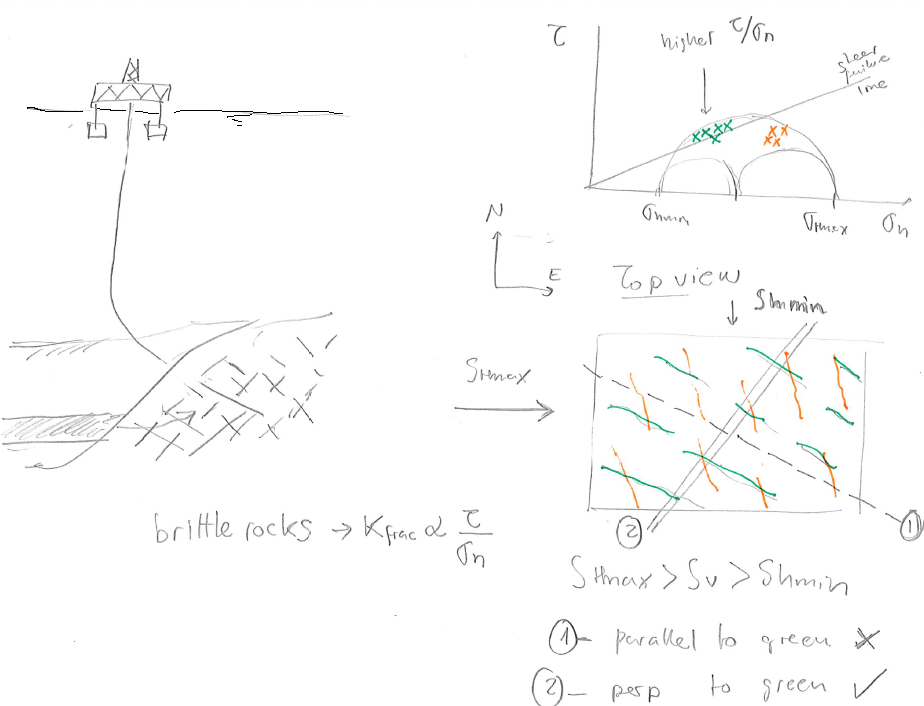 τ
higher τ/σn
shear
failure
line
σhmin
σHmax
σn
N
E
Top view
Shmin
SHmax
2
1
brittle rocks → Kfrac ∝ τ/σn
SHmax > Sv > Shmin
1 – parallel to green ✗
2 – perp to green ✓